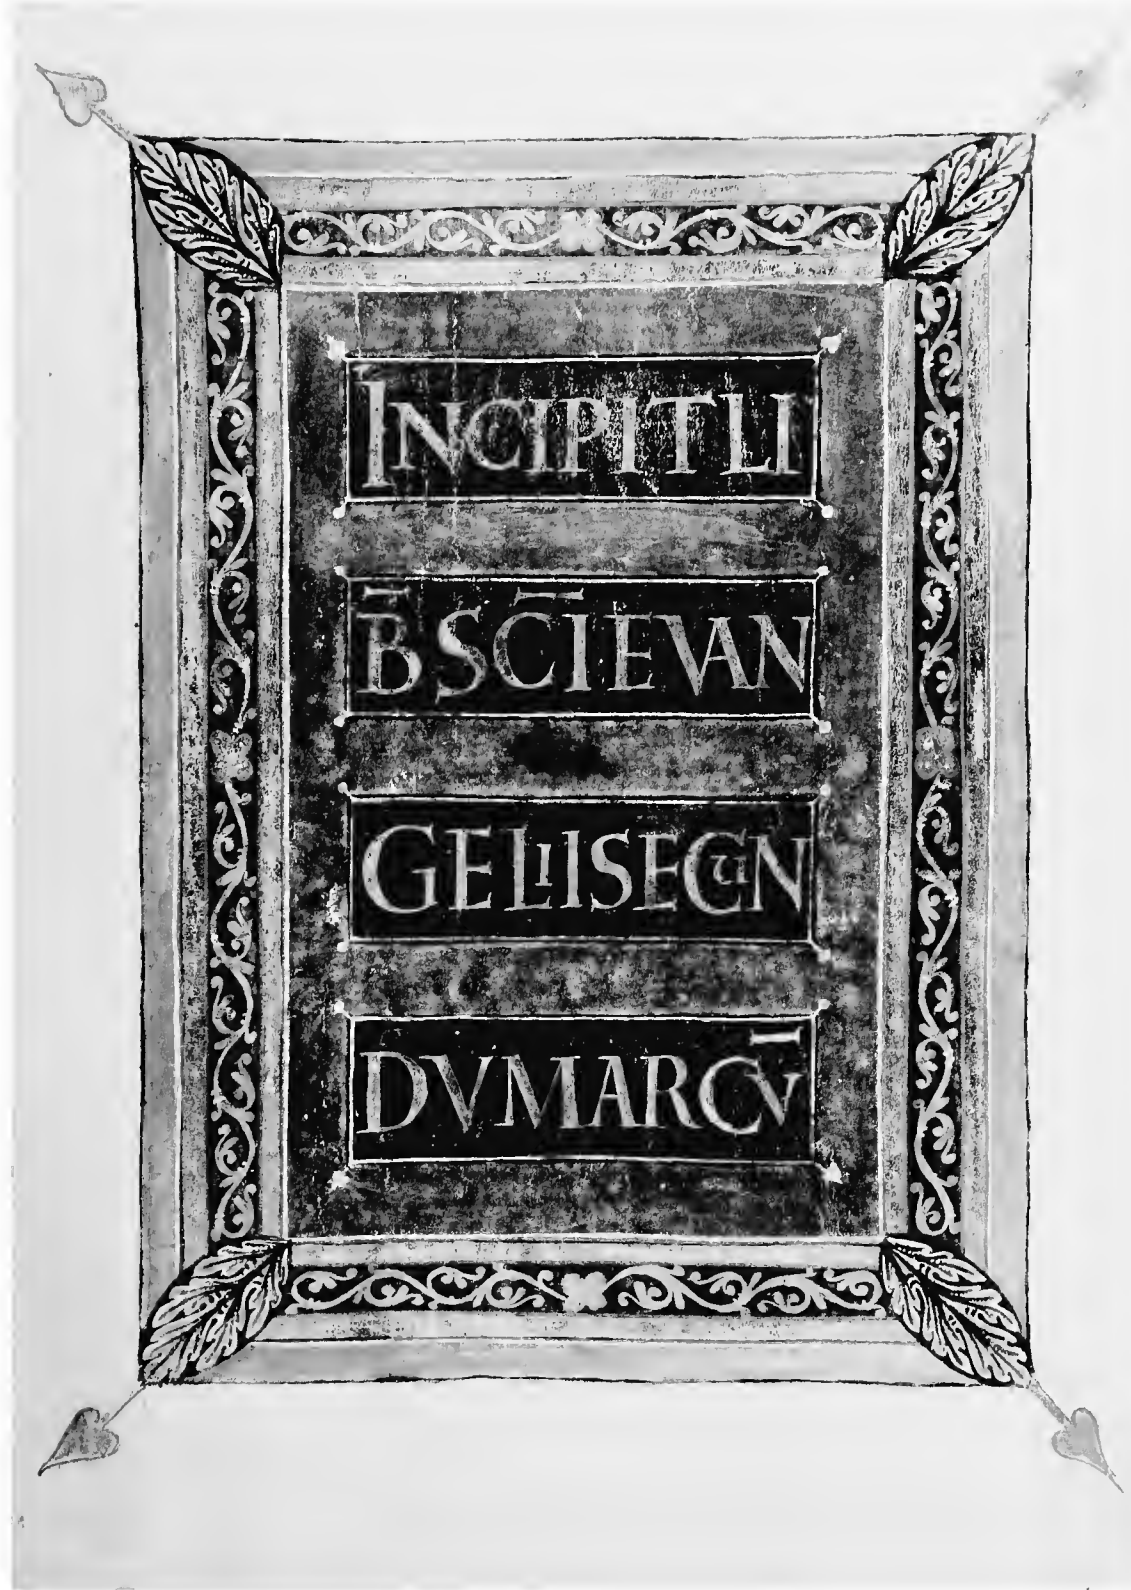 INCIPITLI
B̅ SC̅I EVAN
GELIISECUN
DVMARCV̅